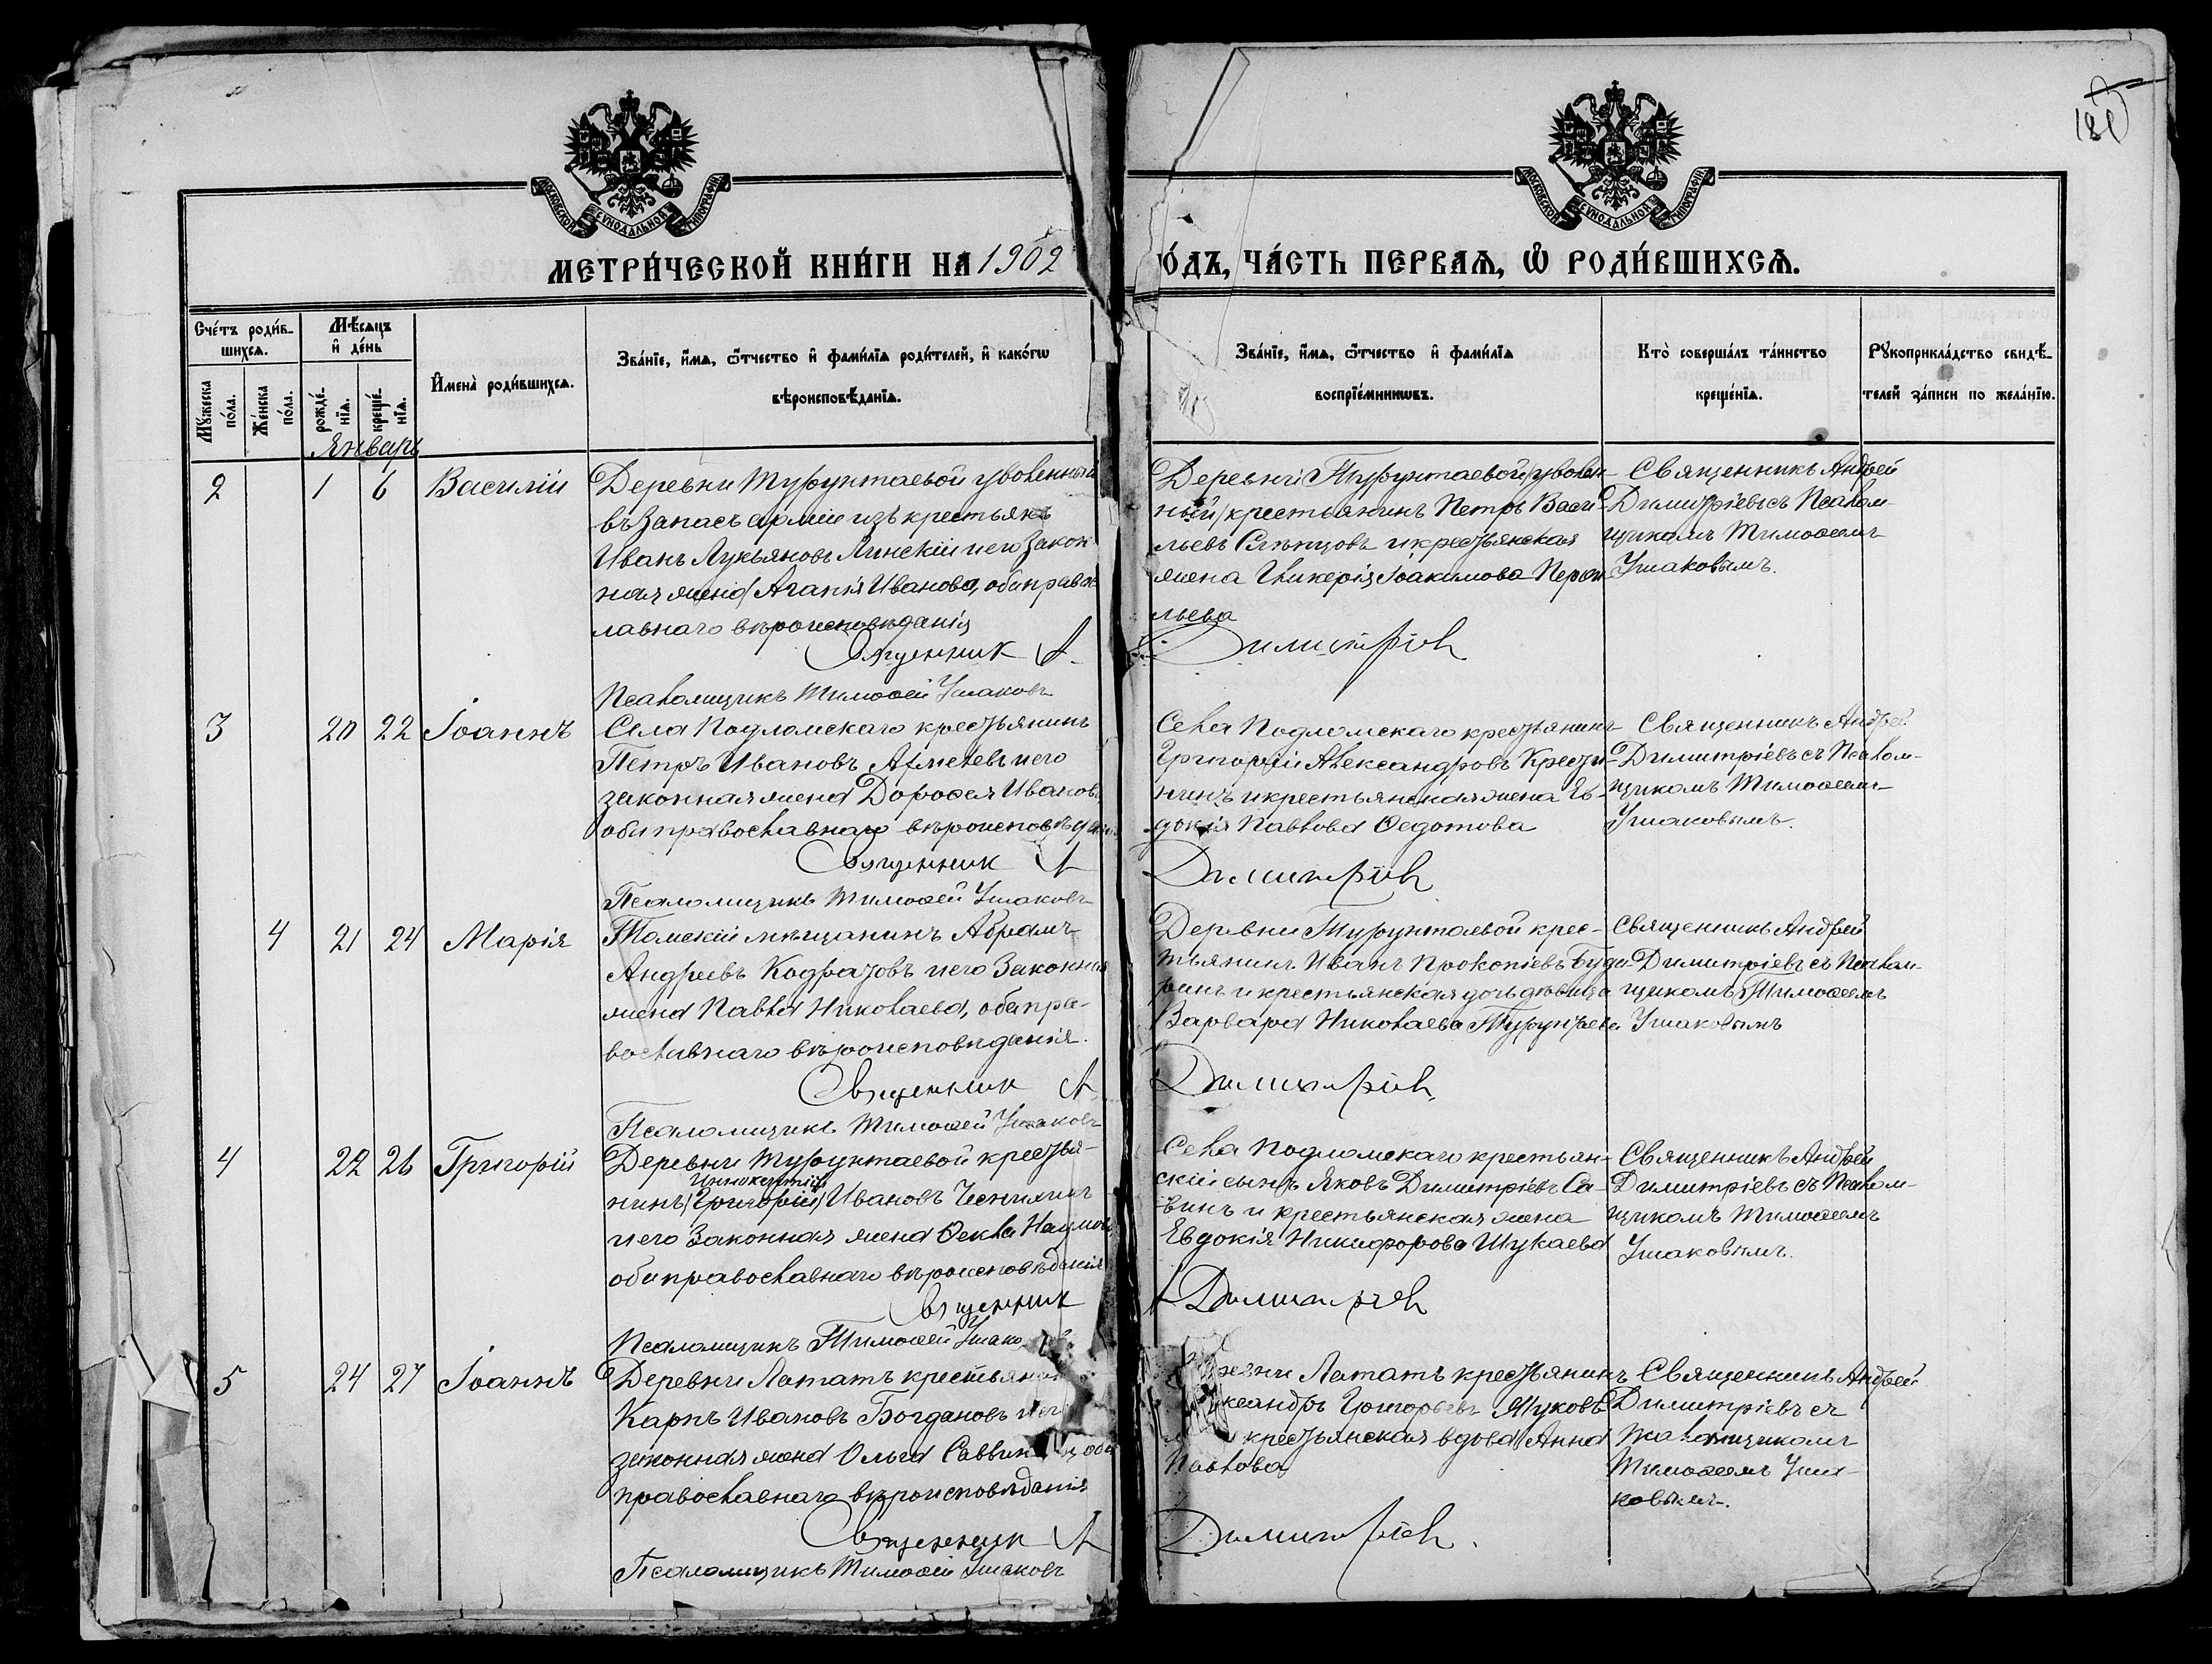 181
МОСКОВСКОЙ СѴНОДАЛЬНОЙ ТИПОГРАФІИ
МОСКОВСКОЙ СѴНОДАЛЬНОЙ ТИПОГРАФІИ
МЕТРИ́ЧЕСКОЙ КНИ́ГИ НА 1902
О́ДЪ, ЧА́СТЬ ПЕ́РВАѦ, Ѿ РОДИ́ВШИХСѦ.
Сче́тъ роди́в-
шихсѧ.
Мѹ́жеска по́ла.
Же́нска по́ла.
Мѣ́сѧцъ
и҆ де́нь
рожде́нїѧ.
креще́нїѧ.
И҆мена̀ роди́вшихсѧ.
Зва́нїе, и҆́мѧ, ѻ҆́тчество и҆ фами́лїѧ роди́телей, и҆ како́гѡ
вѣроисповѣ́данїѧ.
Зва́нїе, и҆́мѧ, ѻ҆́тчество и҆ фами́лїѧ
воспрїе́мникѡвъ.
Кто̀ соверша́лъ та́инство
креще́нїѧ.
Рꙋкоприкла́дство свидѣ́-
телей за́писи по жела́нїю.
Январь
2
1
6
Василій
Деревни Турунтаевой уволенный
въ запасъ арміи изъ крестьянъ
Иванъ Лукьяновъ Линскій и его закон
ная жена Агапія Иванова, оба правос
лавнаго вѣроисповѣданія
Священник А.
Псаломщикъ Тимофей Ушаковъ
Деревни Турунтаевой уволен
ный крестьянинъ Петръ Васи-
льевъ Слѣпцовъ и крестьянская
жена Гликерія Іоакимова
льева
Димитріев
Священникъ Андрей
Димитріевъ съ Псалом-
щикомъ Тимофеемъ
Ушаковымъ.
3
20
22
Іоаннъ
Села Подломскаго крестьянинъ
Петръ Ивановъ и его
законная жена Дорофея Иванова
оба православнаго вѣроисповѣданія
Священник А
Псаломщикъ Тимофей Ушаковъ
Села Подломскаго крестьянинъ
Григорій Александровъ Крести-
нинъ и крестьянская жена Ев-
докія Павлова Федотова
Димитріев
Священникъ Андрей
Димитріевъ съ Псалом-
щикомъ Тимофеемъ
Ушаковымъ.
4
21
24
Марія
Томскій мѣщанинъ Абрамъ
Андреевъ Кодратовъ и его законная
жена Павла Николаева, оба пра-
вославнаго вѣроисповѣданія.
Священник А
Псаломщикъ Тимофей Ушаковъ
Деревни Турунтаевой крес-
тьянинъ Иванъ Прокопіевъ
и крестьянская дочь дѣвица
Варвара Николаева Турунтаева
Димитріев.
Священникъ Андрей
Димитріевъ съ Псалом-
щикомъ Тимофеемъ
Ушаковымъ
4
22
26
Григорій
Деревни Турунтаевой крестья-
Иннокентій
нинъ (Григорій) Ивановъ
и его законная жена Фекла Наумова
оба православнаго вѣроисповѣданія
Священник
Псаломщикъ Тимофей Ушако
Села Подломскаго крестьян-
скій сынъ Яковъ Димитріевъ Са-
винъ и крестьянская жена
Евдокія Никифорова Шукаева
А Димитріев
Священникъ Андрей
Димитріевъ съ Псалом-
щикомъ Тимофеемъ
Ушаковымъ.
5
24
27
Іоаннъ
Деревни Лататъ крестьянин
Карпъ Ивановъ Богдановъ и ег
законная жена Ольга оба
православнаго вѣроисповѣданія
Священник А
Псаломщикъ Тимофей Ушаковъ
ревни Лататъ крестьянинъ
ксандръ Григорьевъ Жуковъ
крестьянская вдова Анна
Павлова
Димитріев.
Священникъ Андрей
Димитріевъ съ
Псаломщикомъ
Тимофеемъ Уша-
ковымъ.